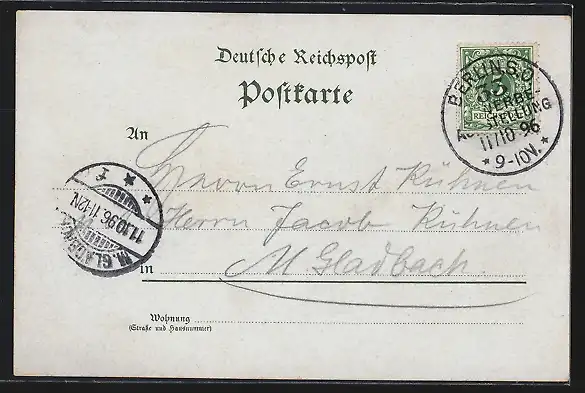 Deutsche Reichspost
Postkarte
BERLIN S.O.
GEWERBE-
AUSSTELLUNG
11/10 96
* 9-10V. *
An
Herrn Ernst Kühnen
Herrn Jacob Kühnen
in M Gladbach.
M. GLADBACH
11.10.96.11-12N.
* * f
Wohnung
(Straße und Hausnummer)